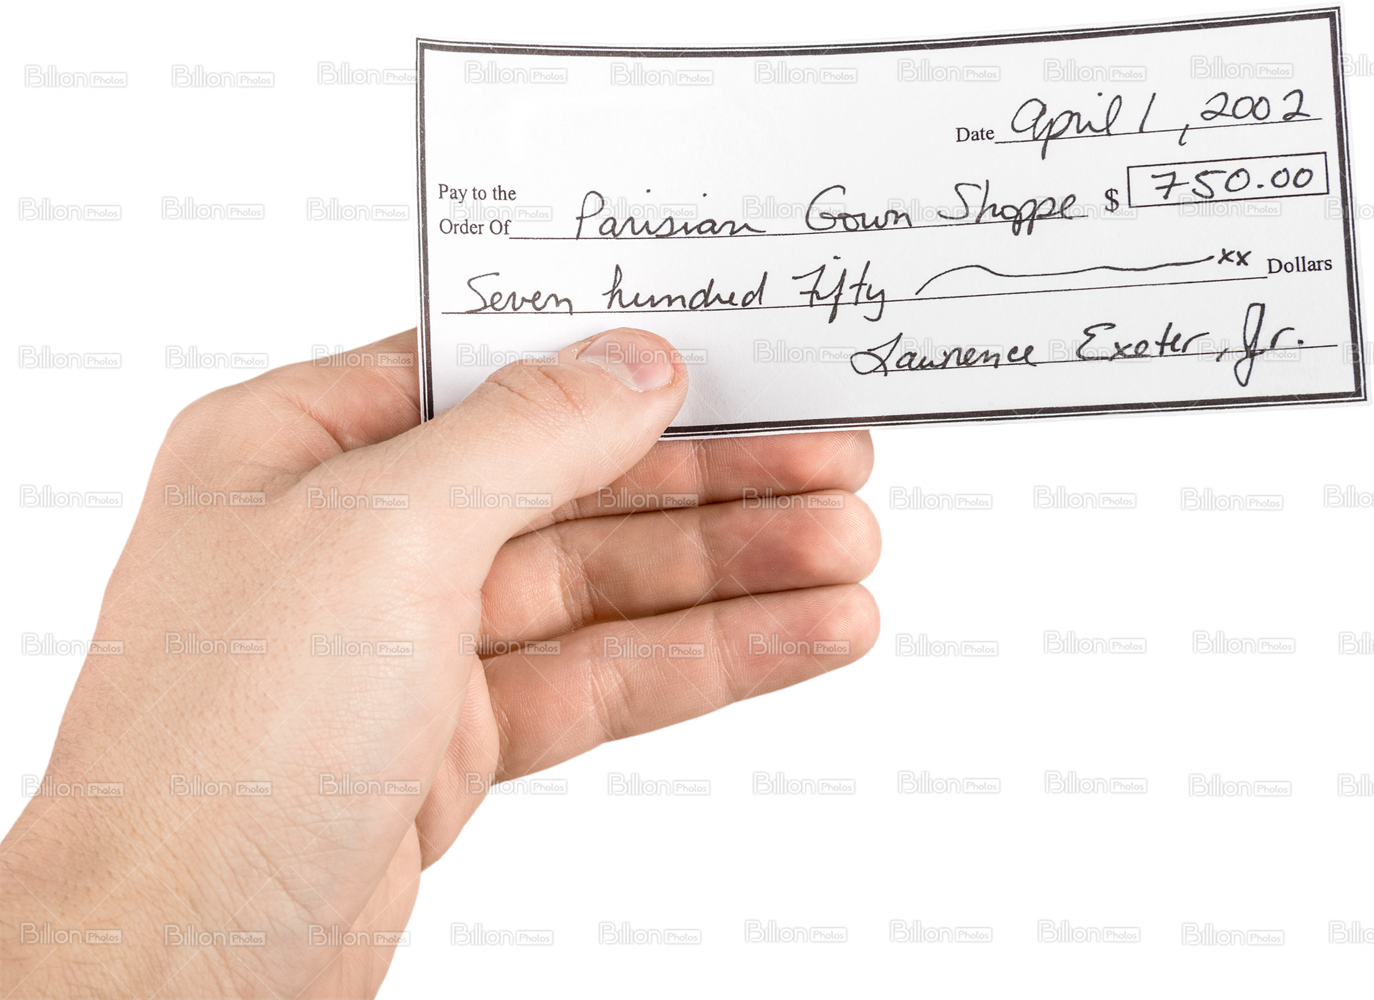 Date April 1, 2002
Pay to the
Order Of Parisian Gown Shoppe $ 750.00
Seven hundred Fifty xx Dollars
Lawrence Exeter, Jr.
Billion Photos